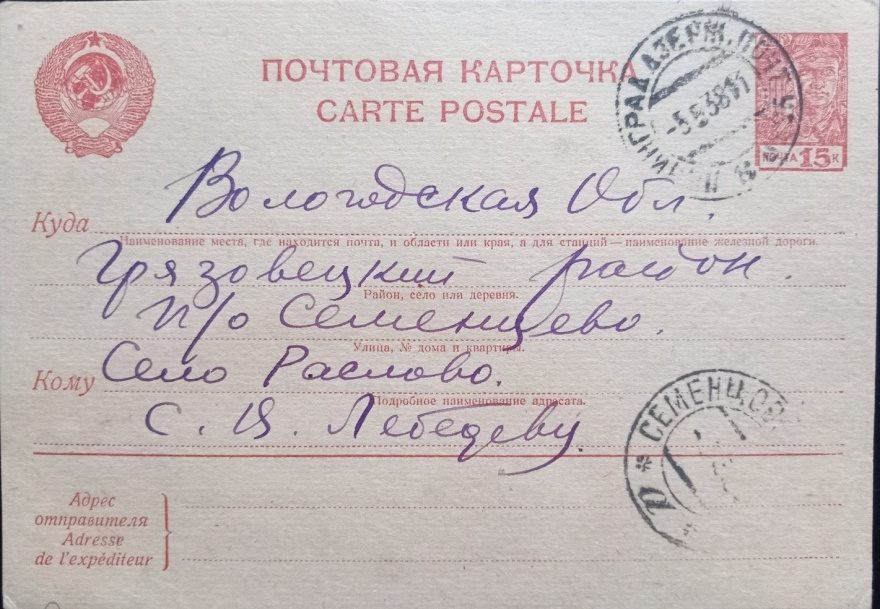 ПОЧТОВАЯ КАРТОЧКА
CARTE POSTALE
ДЗЕРЖ. ПОЧТ
-5 38 11
ПОЧТА 15 К
Вологодская Обл.
Куда
Наименование места, где находится почта, и области или края, а для станций — наименование железной дороги.
Грязовецкий район.
Район, село или деревня.
п/о Семенцево.
Улица, № дома и квартиры.
Кому Село Раслово.
Подробное наименование адресата.
С. Я. Лебедеву
* СЕМЕНЦОВО
Адрес
отправителя
Adresse
de l'expéditeur